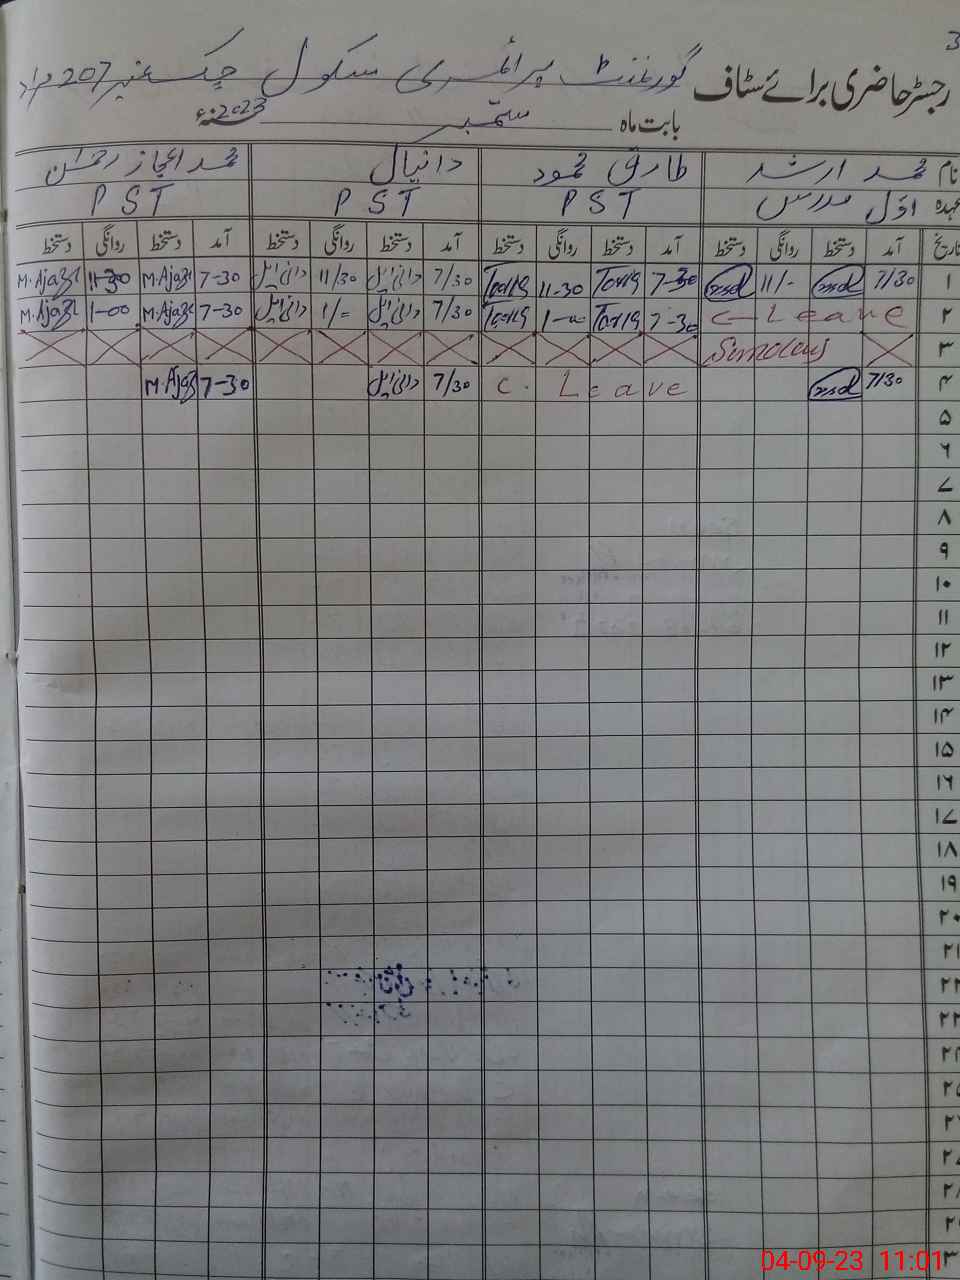 3
رجسٹر حاضری برائے سٹاف گورنمنٹ پرائمری سکول چک نمبر 207 مراد
بابت ماہ ستمبر 2023ء
نام محمد ارشد طارق محمود دانیال محمد اعجاز رحمٰن
عہدہ اوّل مدرس PST PST PST
تاریخ آمد دستخط روانگی دستخط آمد دستخط روانگی دستخط آمد دستخط روانگی دستخط آمد دستخط روانگی دستخط
۱ 7/30 11/- 7-30 Tariq 11-30 Tariq 7/30 دانیال 11/30 دانیال 7-30 M.Ajaz 11-30 M.Ajaz
۲ C-Leave 7-30 Tariq 1-00 Tariq 7/30 دانیال 1/- دانیال 7-30 M.Ajaz 1-00 M.Ajaz
۳ Sunday
۴ 7/30 C. Leave 7/30 دانیال 7-30 M.Ajaz
۵
۶
۷
۸
۹
۱۰
۱۱
۱۲
۱۳
۱۴
۱۵
۱۶
۱۷
۱۸
۱۹
۲۰
۲۱
۲۲
۲۳
۲۴
۲۵
۲۶
۲۷
۲۸
۲۹
۳۰
04-09-23 11:01